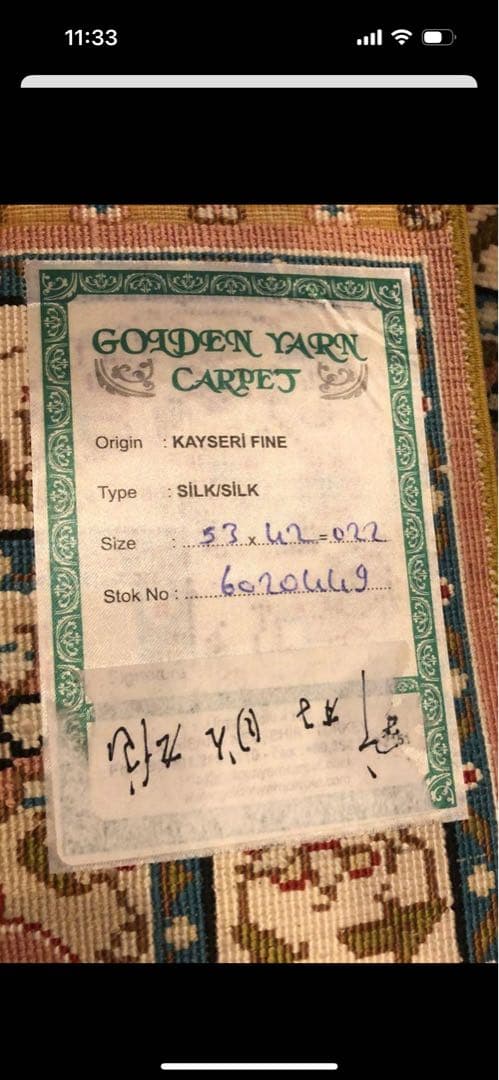 11:33
GOLDEN YARN
CARPET
Origin : KAYSERİ FINE
Type : SİLK/SİLK
Size : 53 x 42 = 022
Stok No : 6020449